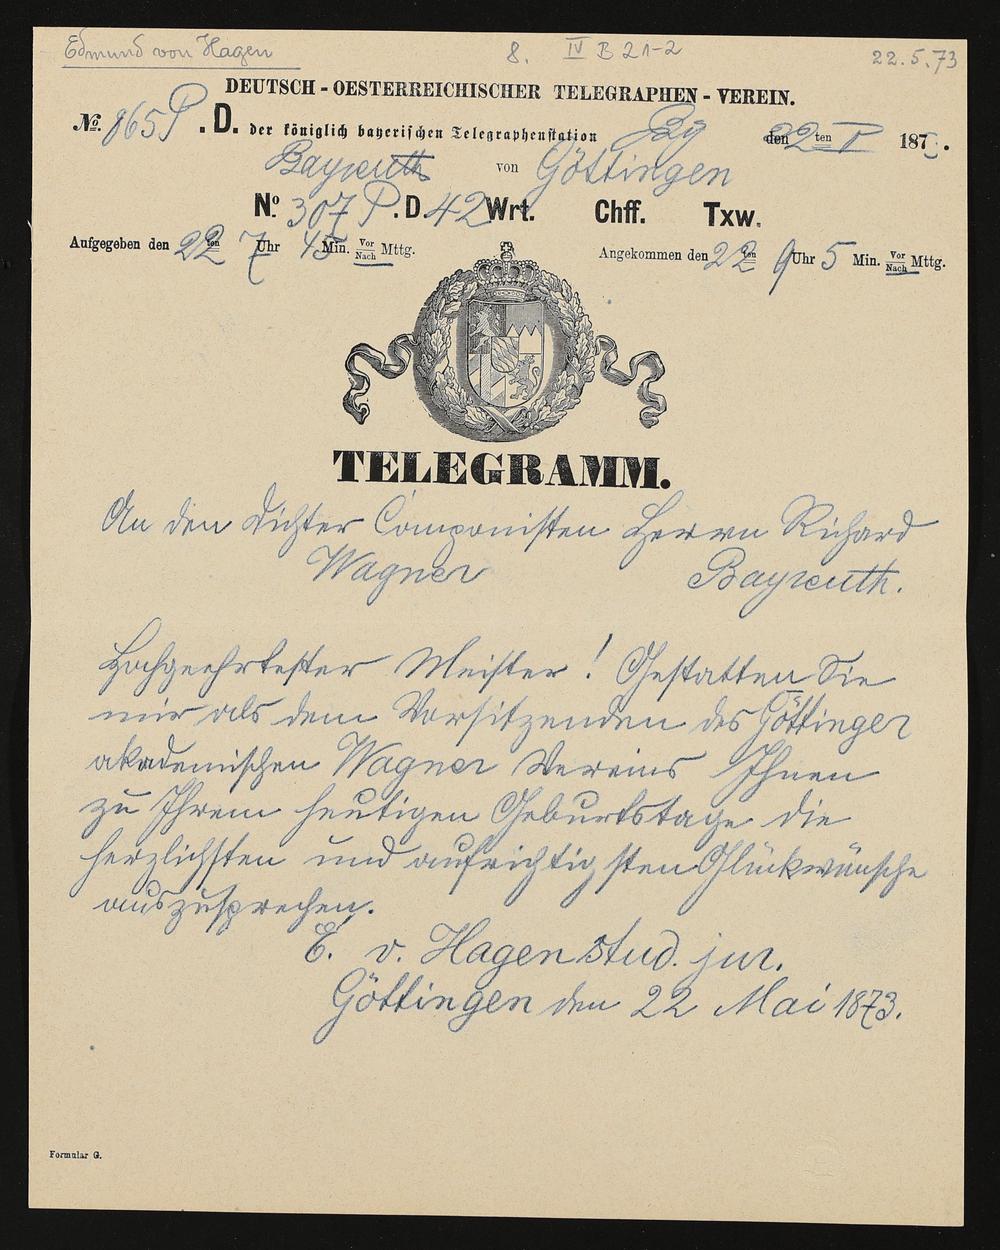 Edmund von Hagen 8. IV B 21-2 22.5.73
DEUTSCH-OESTERREICHISCHER TELEGRAPHEN-VEREIN.
No. 865 P.D. der königlich bayerischen Telegraphenstation Bg den 22ten V 187
Bayreuth von Göttingen
No. 307 P.D. 42 Wrt. Chff. Txw.
Aufgegeben den 22ten 7 Uhr 45 Min. Vor Nach Mttg. Angekommen den 22ten 9 Uhr 5 Min. Vor Nach Mttg.
TELEGRAMM.
An den Dichter Componisten Herrn Richard
Wagner Bayreuth.
Hochgeehrtester Meister! Gestatten Sie
mir als dem Vorsitzenden des Göttinger
akademischen Wagner Vereins Ihnen
zu Ihrem heutigen Geburtstage die
herzlichsten und aufrichtigsten Glückwünsche
auszusprechen.
E. v. Hagen stud. jur.
Göttingen den 22 Mai 1873.
Formular G.